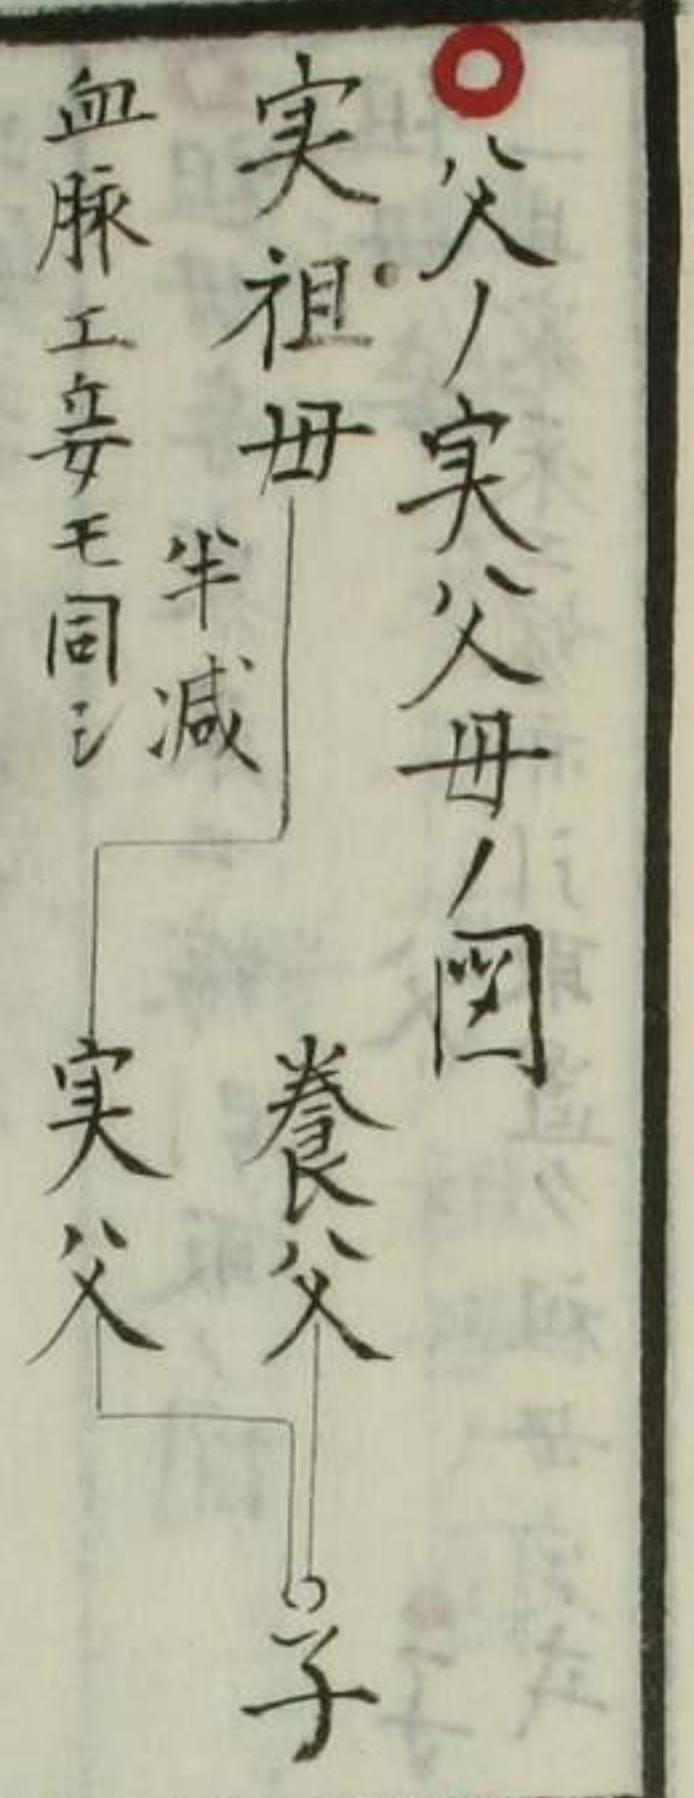 父ノ実父母ノ図
実祖母
半減
血脉エ妾モ同シ
養父
実父
子